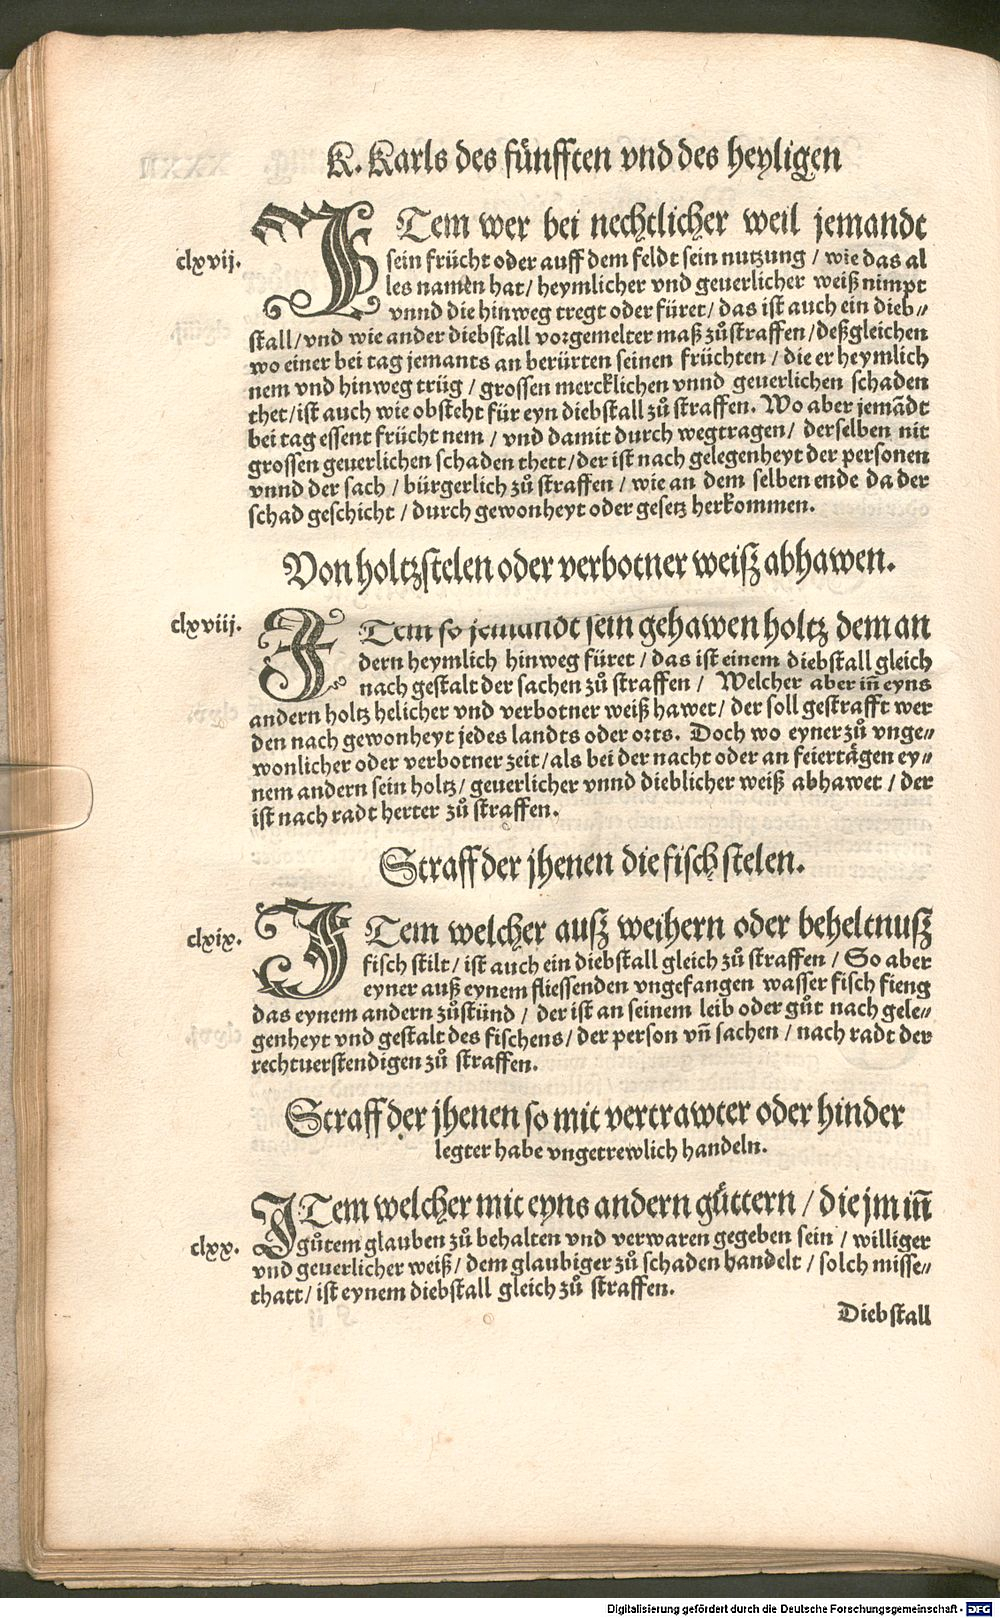 K. Karls des fünfften vnd des heyligen
clxvij.
ITem wer bei nechtlicher weil jemandt
sein frücht oder auff dem feldt sein nutzung / wie das al
les namen hat / heymlicher vnd geuerlicher weiß nimpt
vnnd die hinweg tregt oder füret / das ist auch ein dieb⸗
stall / vnd wie ander diebstall vorgemelter maß zůstraffen / deßgleichen
wo einer bei tag jemants an berürten seinen früchten / die er heymlich
nem vnd hinweg trüg / grossen mercklichen vnnd geuerlichen schaden
thet / ist auch wie obsteht für eyn diebstall zů straffen. Wo aber jemãdt
bei tag essent frücht nem / vnd damit durch wegtragen / derselben nit
grossen geuerlichen schaden thett / der ist nach gelegenheyt der personen
vnnd der sach / bürgerlich zů straffen / wie an dem selben ende da der
schad geschicht / durch gewonheyt oder gesetz herkommen.
Von holtzstelen oder verbotner weiß abhawen.
clxviij.
ITem so jemandt sein gehawen holtz dem an
dern heymlich hinweg füret / das ist einem diebstall gleich
nach gestalt der sachen zů straffen / Welcher aber iñ eyns
andern holtz helicher vnd verbotner weiß hawet / der soll gestrafft wer
den nach gewonheyt jedes landts oder orts. Doch wo eyner zů vnge⸗
wonlicher oder verbotner zeit / als bei der nacht oder an feiertägen ey⸗
nem andern sein holtz / geuerlicher vnnd dieblicher weiß abhawet / der
ist nach radt herter zů straffen.
Straff der jhenen die fisch stelen.
clxix.
ITem welcher auß weihern oder beheltnuß
fisch stilt / ist auch ein diebstall gleich zů straffen / So aber
eyner auß eynem fliessenden vngefangen wasser fisch fieng
das eynem andern zůstünd / der ist an seinem leib oder gůt nach gele⸗
genheyt vnd gestalt des fischens / der person vñ sachen / nach radt der
rechtuerstendigen zů straffen.
Straff der jhenen so mit vertrawter oder hinder
legter habe vngetrewlich handeln.
clxx.
ITem welcher mit eyns andern güttern / die jm iñ
gůtem glauben zů behalten vnd verwaren gegeben sein / williger
vnd geuerlicher weiß / dem glaubiger zů schaden handelt / solch misse⸗
thatt / ist eynem diebstall gleich zů straffen.
Diebstall
Digitalisierung gefördert durch die Deutsche Forschungsgemeinschaft - DFG